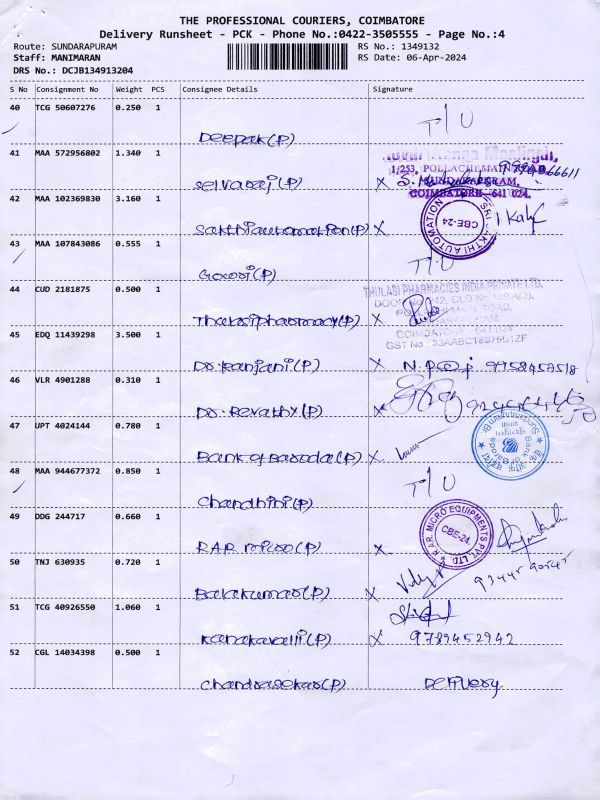 THE PROFESSIONAL COURIERS, COIMBATORE
Delivery Runsheet - PCK - Phone No.:0422-3505555 - Page No.:4
Route: SUNDARAPURAM RS No.: 1349132
Staff: MANIMARAN RS Date: 06-Apr-2024
DRS No.: DCJB134913204
S No Consignment No Weight PCS Consignee Details Signature
40 TCG 50607276 0.250 1
Deepak(P) T/U
41 MAA 572956802 1.340 1
1/253, POLLACHI MAIN ROAD,
SUNDARAPURAM,
COIMBATORE - 641 024.
Selvaraj(P) X
42 MAA 102369830 3.160 1
SRI SAKTHI AUTOMATION CBE-24
Sakthiautomation(P) X
43 MAA 107843086 0.555 1
Gowri(P) T/U
44 CUD 2181875 0.500 1
THULASI PHARMACIES INDIA PRIVATE LTD,
Thulasipharmacy(P) X
45 EDQ 11439298 3.500 1
Dr.Ranjani(P) X
46 VLR 4901288 0.310 1
Dr.Revathy(P) X
47 UPT 4024144 0.780 1
Bank of Baroda
Bank of Baroda(P) X
48 MAA 944677372 0.850 1
Chandhini(P) T/U
49 DDG 244717 0.660 1
R.A.R. MICRO EQUIPMENTS PVT. LTD. CBE-24
RAR micro(P) X
50 TNJ 630935 0.720 1
Balakumar(P) X
51 TCG 40926550 1.060 1
Kanakavalli(P) X 9789452942
52 CGL 14034398 0.500 1
Chandrasekar(P) Delivery